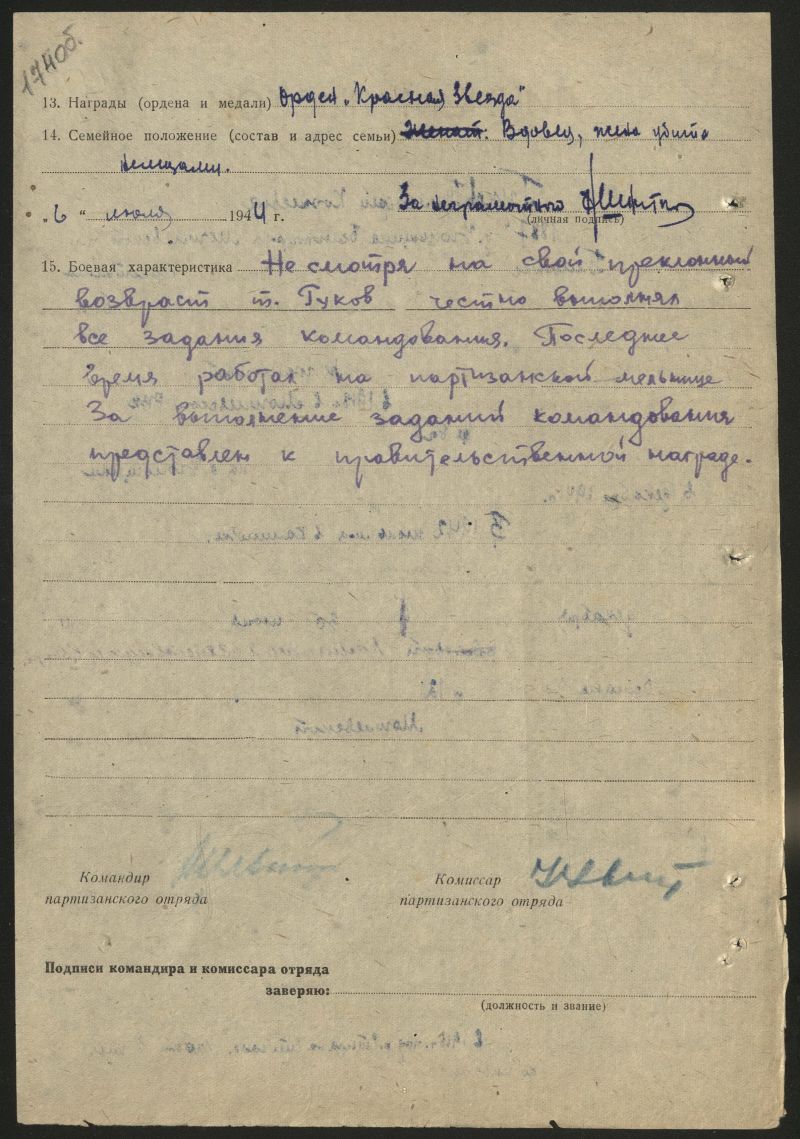 1740об.
13. Награды (ордена и медали) Орден „Красная Звезда"
14. Семейное положение (состав и адрес семьи) Женат. Вдовец, жена убита
немцами.
„6" июля 1944 г. За неграмотного
(личная подпись)
15. Боевая характеристика Не смотря на свой преклонный
возвраст т. Гуков честно выполнял
все задания командования. Последнее
время работал на партизанской мельнице
За выполнение заданий командования
представлен к правительственной награде.
Командир
партизанского отряда
Комиссар
партизанского отряда
Подписи командира и комиссара отряда
заверяю:
(должность и звание)